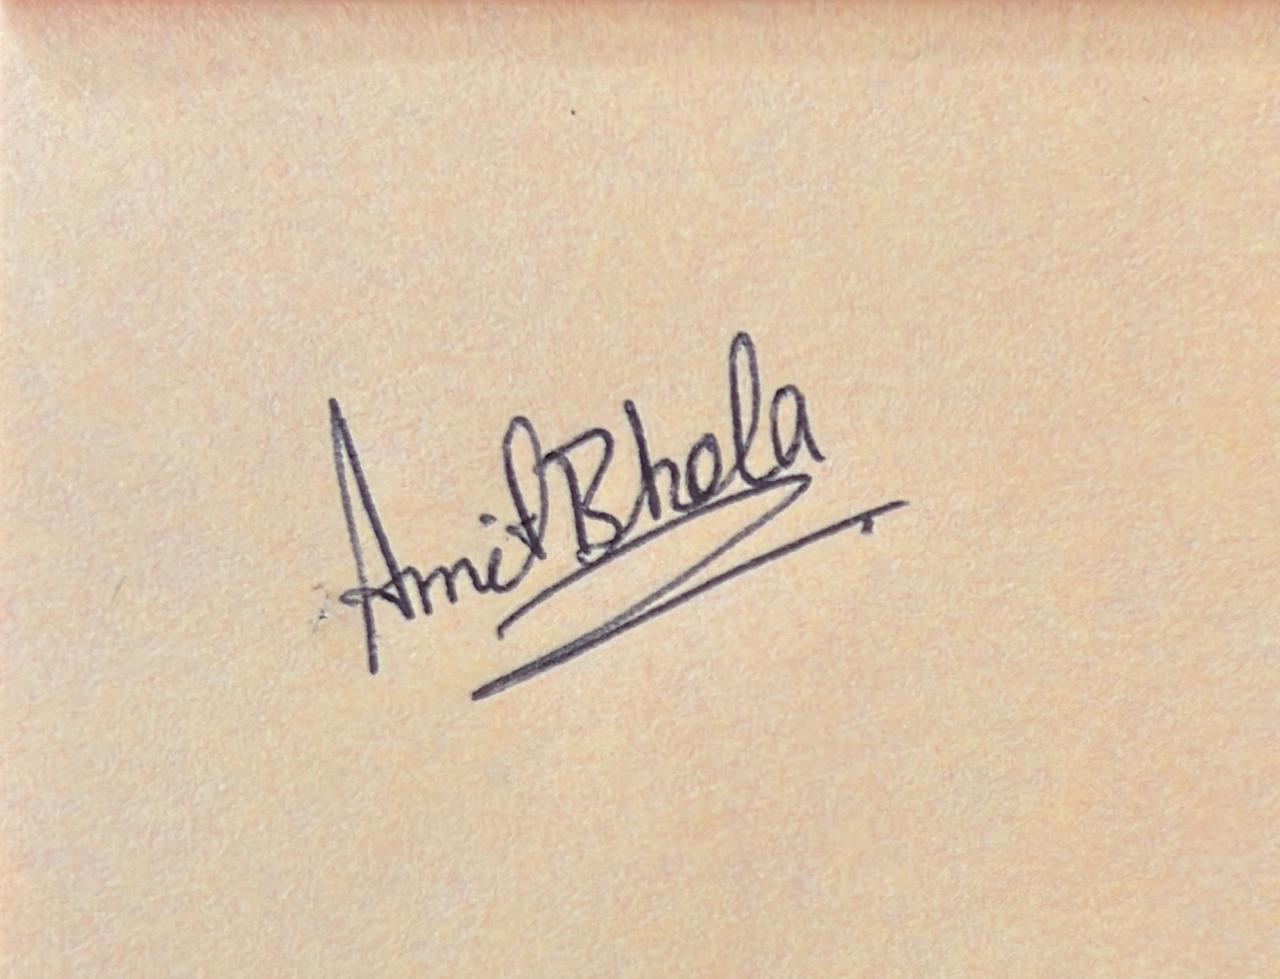 Amit Bhola